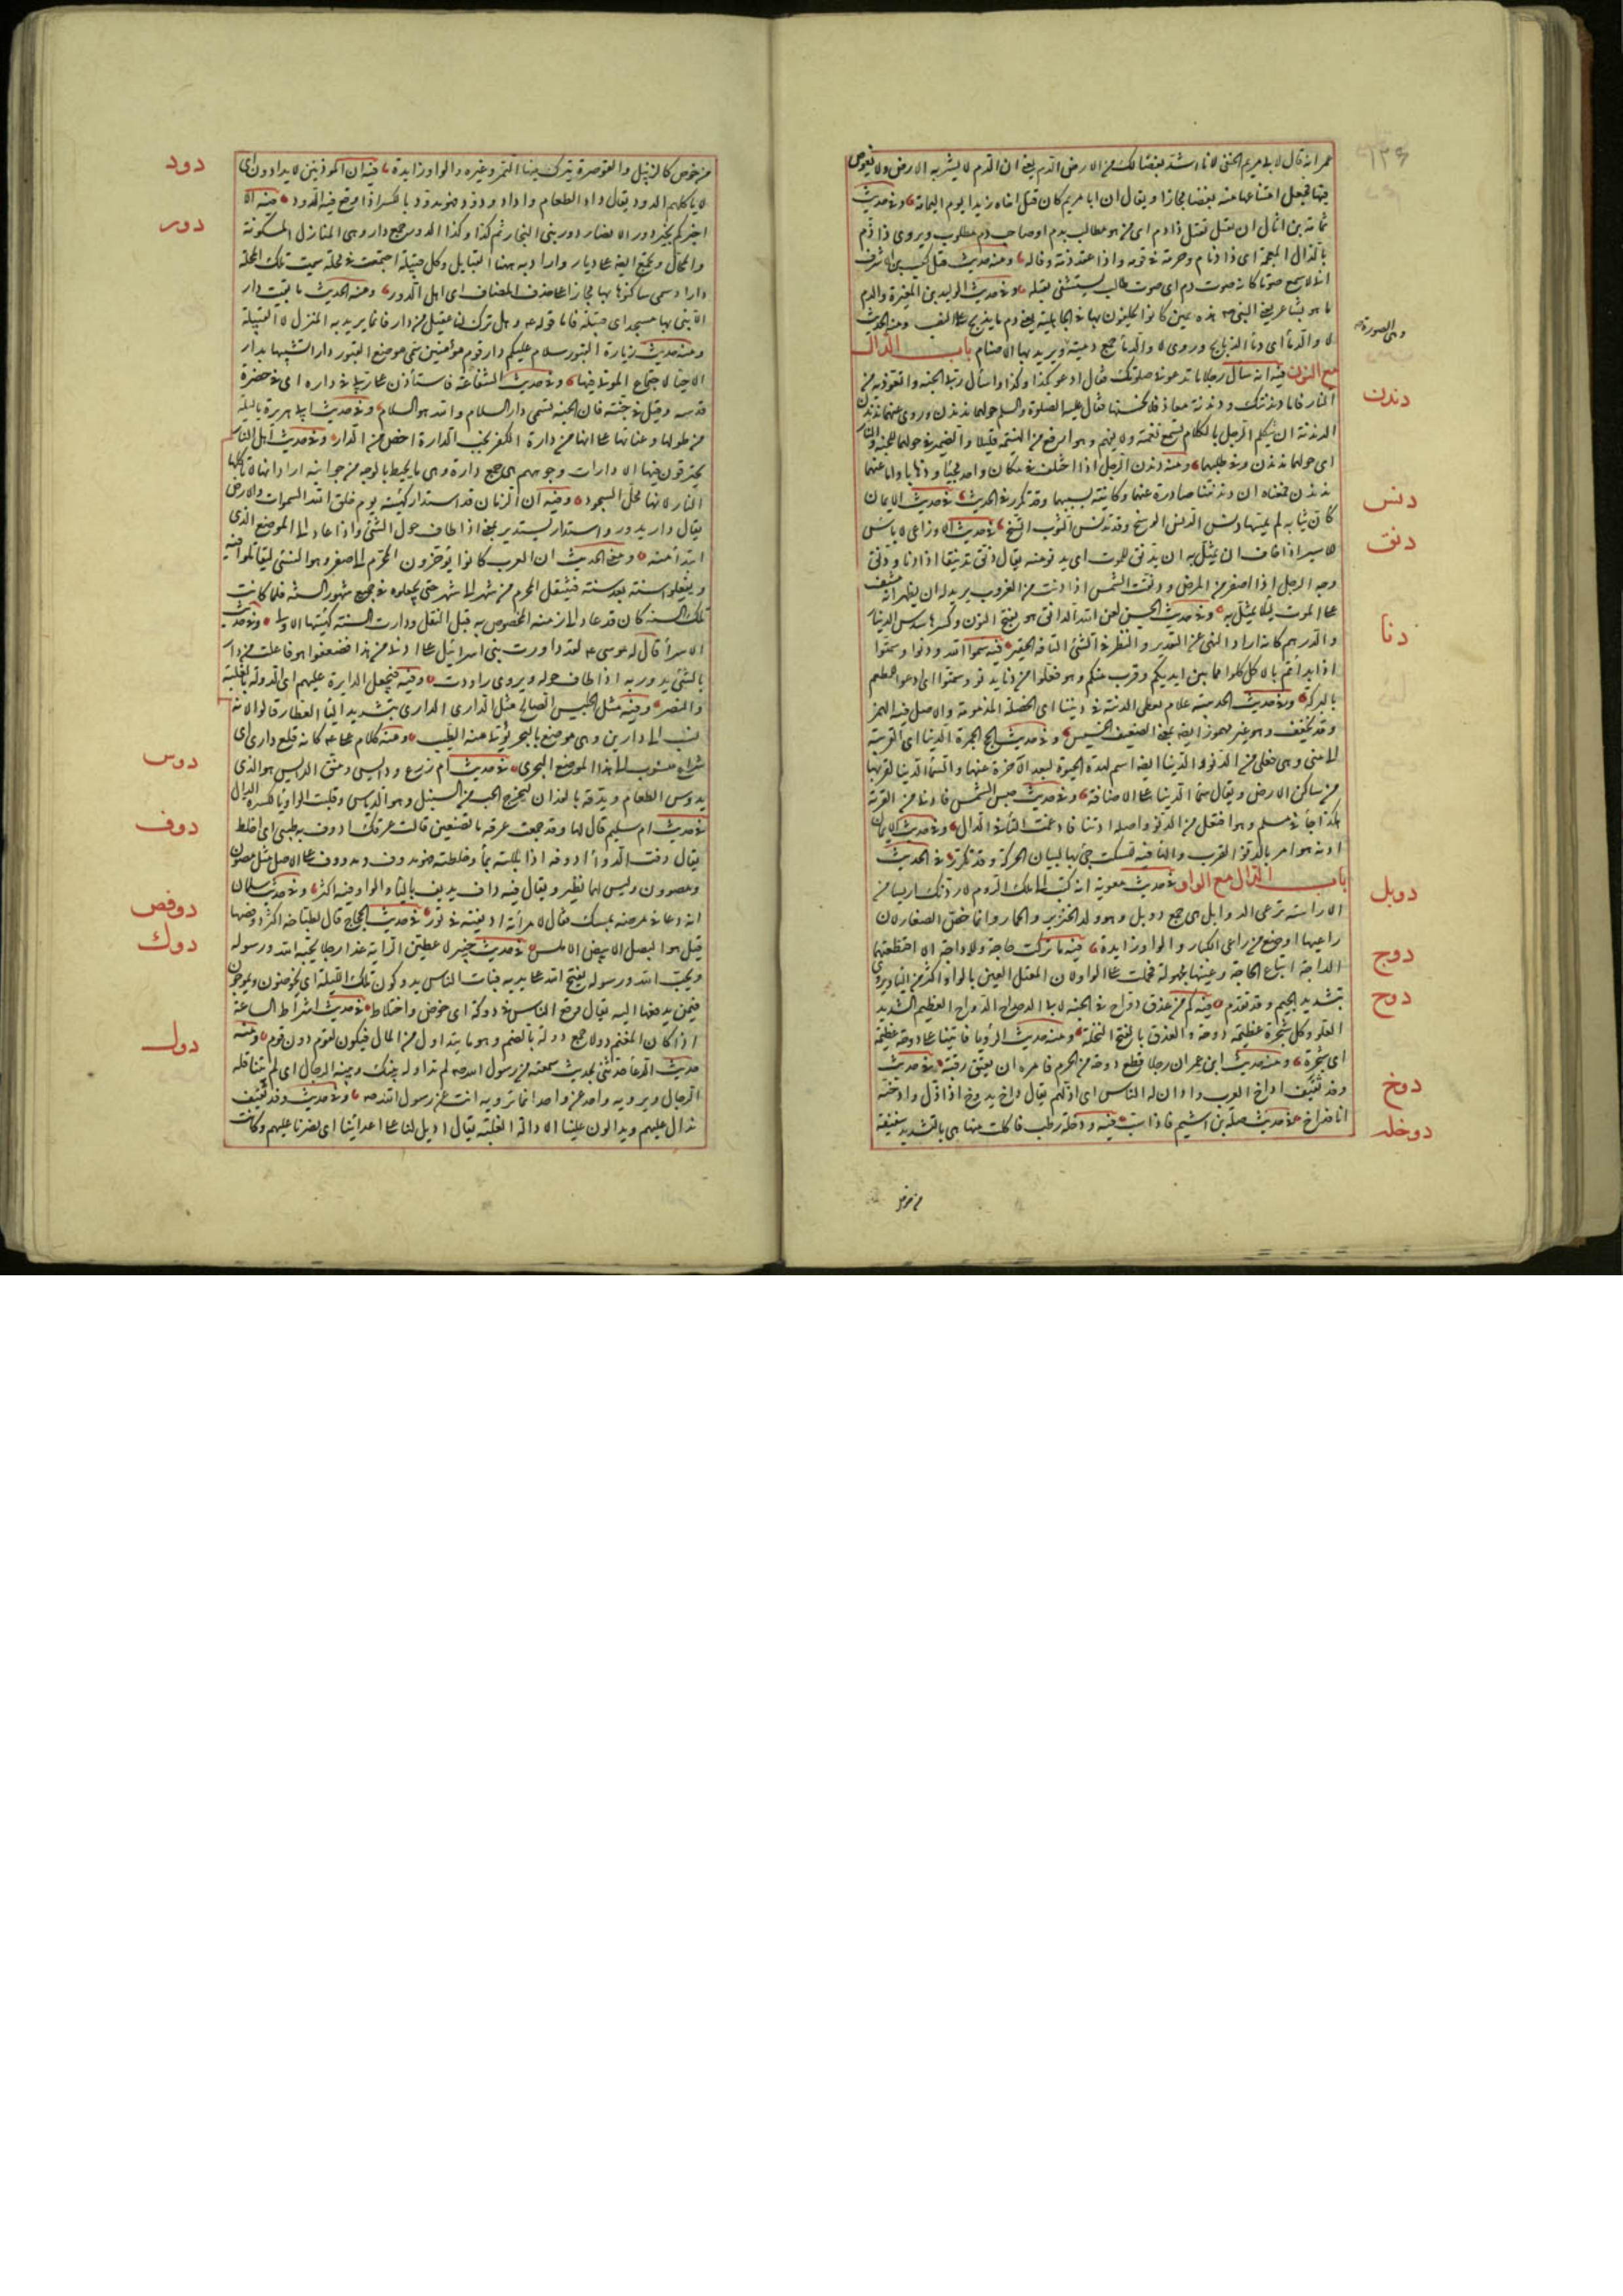 عمر انه قال لابى مريم الحنفى لانا اشد بغضا لك من الارض للدم يعنى ان الدم لا يشربه الارض ولا يغوص
فيها فجعل امتناعها منه بغضا مجازا ويقال ان ابا مريم كان قتل اخاه زيدا يوم اليمامة وفى حديث
ثمامة بن اثال ان تقتل تقتل ذا دم اى من هو مطالب بدم او صاحب دم مطلوب ويروى ذا ذم
بالذال المعجمة اى ذا ذمام وحرمة فى قومه واذا عقد ذمة وفى له ومنه حديث قتل كعب بن الاشرف
انى لاسمع صوتا كانه صوت دم اى صوت طالب دم يستشفى بقتله وفى حديث الوليد بن المغيرة والدم
ما هو بشاعر يعنى النبى صم هذه يمين كانوا يحلفون بها فى الجاهلية يعنى دم ما يذبح على النصب ومنه الحديث
لا والدماء اى دماء الذبائح وروى لا والدمى جمع دمية ويريد بها الاصنام باب الدال
وهى الصورة
مع النون فيه انه سال رجلا ما تدعو فى صلوتك فقال ادعو بكذا وكذا واسأل ربى الجنة واتعوذ به من
دندن
النار فاما دندنتك ودندنة معاذ فلا نحسنها فقال عليه الصلوة والسلم حولهما ندندن وروى عنهما ندندن
الدندنة ان يتكلم الرجل بالكلام تسمع نغمته ولا يفهم وهو ارفع من الهينمة قليلا والضمير فى حولهما للجنة والنار
اى حولهما ندندن وفى طلبهما ومنه دندن الرجل اذا اختلف فى مكان واحد مجيئا وذهابا واما عنهما
ندندن فمعناه ان دندنتنا صادرة عنهما وكائنة بسببهما وقد تكرر فى الحديث فى حديث الايمان
دنس
كان ثيابه لم يمسها دنس الدنس الوسخ وقد تدنس الثوب اتسخ فى حديث الاوزاعى لا باس
دنق
للاسير اذا خاف ان يمثل به ان يدنق للموت اى يدنو منه يقال دنق تدنيقا اذا دنا ودنق
وجه الرجل اذا اصفر من المرض ودنقت الشمس اذا دنت من الغروب يريد له ان يظهر انه مشف
على الموت لئلا يمثل به وفى حديث الحسن لعن الله الدانق هو بفتح النون وكسرها سدس الدينار
والدرهم كانه اراد النهى عن التقدير والنظر فى الشئ التافه الحقير فيه سموا الله ودنوا وسمتوا
دنا
اذا بداتم بالاكل كلوا مما بين ايديكم وقرب منكم وهو فعلوا من دنا يدنو وسمتوا اى ادعوا للمطعم
بالبركة وفى حديث الحديبية علام نعطى الدنية فى ديننا اى الخصلة المذمومة والاصل فيه الهمز
وقد تخفف وهو غير مهموز ايضا بمعنى الضعيف الخسيس وفى حديث الحج الجمرة الدنيا اى القريبة
الى منى وهى فعلى من الدنو والدنيا ايضا اسم لهذه الحيوة لبعد الآخرة عنها والسماء الدنيا لقربها
من ساكنى الارض ويقال سماء الدنيا على الاضافة وفى حديث حبس الشمس فادنا من القرية
هكذا جاء فى مسلم وهو افتعل من الدنو واصله ادتنا فادغمت التاء فى الدال وفى حديث الايمان
ادنه هو امر بالدنو القرب والهاء فيه للسكت جئ بها لبيان الحركة وقد تكرر فى الحديث
باب الدال مع الواو فى حديث معوية انه كتب الى ملك الروم لاردنك اريسا من
دوبل
الارارسة ترعى الدوابل هى جمع دوبل وهو ولد الخنزير والحمار وانما خص الصغار لان
راعيها اوضع من راعى الكبار والواو زايدة فيه ما تركت حاجة ولا داجة الا اقتطعتها
دوج
الداجة اتباع الحاجة وعينها مجهولة فحملت على الواو لان المعتل العين بالواو اكثر من الياء ويروى
بتشديد الجيم وقد تقدم فيه كم من عذق دواح فى الجنة لابى الدحداح الدواح العظيم الشديد
دوح
العلو وكل شجرة عظيمة دوحة والعذق بالفتح النخلة ومنه حديث الرؤيا فاتينا على دوحة عظيمة
اى شجرة ومنه حديث ابن عمر ان رجلا قطع دوحة من الحرم فامره ان يعتق رقبة وفى حديث
وفد ثقيف اداخ العرب ودان له الناس اى اذلهم يقال داخ يدوخ اذا ذل وادخته
دوخ
انا فداخ فى حديث صلة بن اشيم فاذا سب فيه دوخلة رطب فاكلت منها هى بالتشديد سفيفة
دوخله
من خوص
من خوص كالزنبيل والقوصرة يترك فيها التمر وغيره والواو زايدة فيه ان المؤذنين لا يدادون اى
دود
لا ياكلهم الدود يقال داد الطعام واداد ودود فهو مدود بالكسر اذا وقع فيه الدود فيه الا
اخبركم بخير دور الانصار دور بنى النجار ثم كذا وكذا الدور جمع دار وهى المنازل المسكونة
دور
والمحال وتجمع ايضا على ديار واراد به ههنا القبايل وكل قبيلة اجتمعت فى محلة سميت تلك المحلة
دارا وسمى ساكنوها بها مجازا على حذف المضاف اى اهل الدور ومنه الحديث ما بقيت دار
الا بنى بها مسجد اى قبيلة فاما قوله عم وهل ترك لنا عقيل من دار فانما يريد به المنزل لا القبيلة
ومنه حديث زيارة القبور سلام عليكم دار قوم مؤمنين سمى موضع القبور دارا تشبيها بدار
الاحياء لاجتماع الموتى فيها وفى حديث الشفاعة فاستأذن على ربى فى داره اى فى حضرة
قدسه وقيل فى جنته فان الجنة تسمى دار السلام والله هو السلام وفى حديث ابى هريرة يا ليلة
من طولها وعنائها على انها من دارة الكفر نجت الدارة اخص من الدار وفى حديث اهل النار
يحترقون فيها الا دارات وجوههم هى جمع دارة وهى ما يحيط بالوجه من جوانبه اراد انها لا تاكلها
النار لانها محل السجود وفيه ان الزمان قد استدار كهيئته يوم خلق الله السموات والارض
يقال دار يدور واستدار يستدير بمعنى اذا طاف حول الشئ واذا عاد الى الموضع الذى
ابتدأ منه ومعنى الحديث ان العرب كانوا يؤخرون المحرم الى صفر وهو النسئ ليقاتلوا فيه
ويفعلون سنة بعد سنة فينتقل المحرم من شهر الى شهر حتى يجعلوه فى جميع شهور السنة فلما كانت
تلك السنة كان قد عاد الى زمنه المخصوص به قبل النقل ودارت السنة كهيئتها الاولى وفى حديث
الاسراء قال له موسى عم لقد داورت بنى اسرائيل على ادنى من هذا فضعفوا هو فاعلت من دار
بالشئ يدور به اذا طاف حوله ويروى راودت وفيه فيجعل الدايرة عليهم اى الدولة بالغلبة
والنصر وفيه مثل الجليس الصالح مثل الدارى الدارى بتشديد الياء العطار قالوا لانه
نسب الى دارين وهى موضع بالبحر يؤتى منه الطيب ومنه كلام على عم كانه قلع دارى اى
شراع منسوب الى هذا الموضع البحرى فى حديث ام زرع ودايس ومنق الدايس هو الذى
دوس
يدوس الطعام ويدقه بالفدان ليخرج الحب من السنبل وهو الدياس وقلبت الواو ياء لكسرة الدال
فى حديث ام سليم قال لها وقد جمعت عرقه ما تصنعين قالت عرقك ادوف به طيبى اى اخلط
دوف
يقال دفت الدواء ادوفه اذا بللته بماء وخلطته فهو مدوف ومدووف على الاصل مثل مصون
ومصوون وليس لهما نظير ويقال فيه داف يديف بالياء والواو فيه اكثر وفى حديث سلمان
انه دعا فى مرضه بمسك فقال لامرأته اديفيه فى تور فى حديث الحجاج قال لطباخه اكثر دوفصها
دوفص
قيل هو البصل الابيض الاملس فى حديث خيبر لاعطين الراية غدا رجلا يحبه الله ورسوله
دوك
ويحب الله ورسوله يفتح الله على يديه فبات الناس يدوكون تلك الليلة اى يخوضون ويموجون
فيمن يدفعها اليه يقال وقع الناس فى دوكة اى خوض واختلاط فى حديث اشراط الساعة
اذا كان المغنم دولا جمع دولة بالضم وهو ما يتداول من المال فيكون لقوم دون قوم ومنه
دول
حديث الدعاء حدثنى بحديث سمعته من رسول الله صم لم تداوله بينك وبينه الرجال اى لم يتناقله
الرجال ويرويه واحد عن واحد انما ترويه انت عن رسول الله صم وفى حديث وفد ثقيف
ندال عليهم ويدالون علينا الادالة الغلبة يقال اديل لنا على اعدائنا اى نصرنا عليهم وكانت